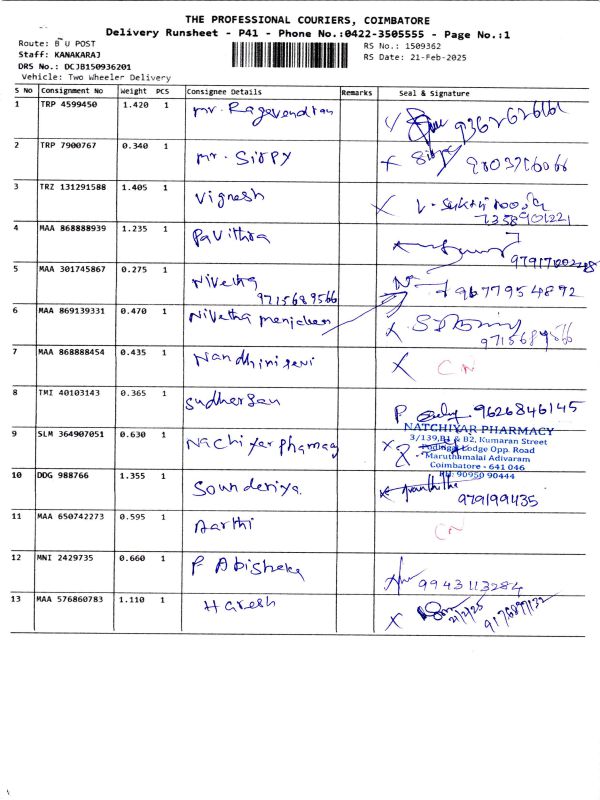 THE PROFESSIONAL COURIERS, COIMBATORE
Delivery Runsheet - P41 - Phone No.:0422-3505555 - Page No.:1
Route: B U POST
RS No.: 1509362
Staff: KANAKARAJ
RS Date: 21-Feb-2025
DRS No.: DCJB150936201
Vehicle: Two Wheeler Delivery
S No Consignment No Weight PCS Consignee Details Remarks Seal & Signature
1 TRP 4599450 1.420 1 Mr. Ragavendran
2 TRP 7900767 0.340 1 Mr. SIRPY
3 TRZ 131291588 1.405 1 Vignesh
7358901221
4 MAA 868888939 1.235 1 Pavithra
5 MAA 301745867 0.275 1 Nivetha 9677954892
9715689566
6 MAA 869139331 0.470 1 Nivetha
9715689566
7 MAA 868888454 0.435 1 Nandhini CN
8 TMI 40103143 0.365 1 Sudharsan 9626846145
9 SLM 364907051 0.630 1 Nachiyar Pharmacy
NATCHIYAR PHARMACY
3/139,B1 & B2, Kumaran Street
Lodge Opp. Road
Maruthamalai Adivaram
Coimbatore - 641 046
PH: 90950 90444
10 DDG 988766 1.355 1 Sounderiya 979199435
11 MAA 650742273 0.595 1 Aarthi CN
12 MNI 2429735 0.660 1 P Abisheka 9943113284
13 MAA 576860783 1.110 1 Haresh 21/2/25